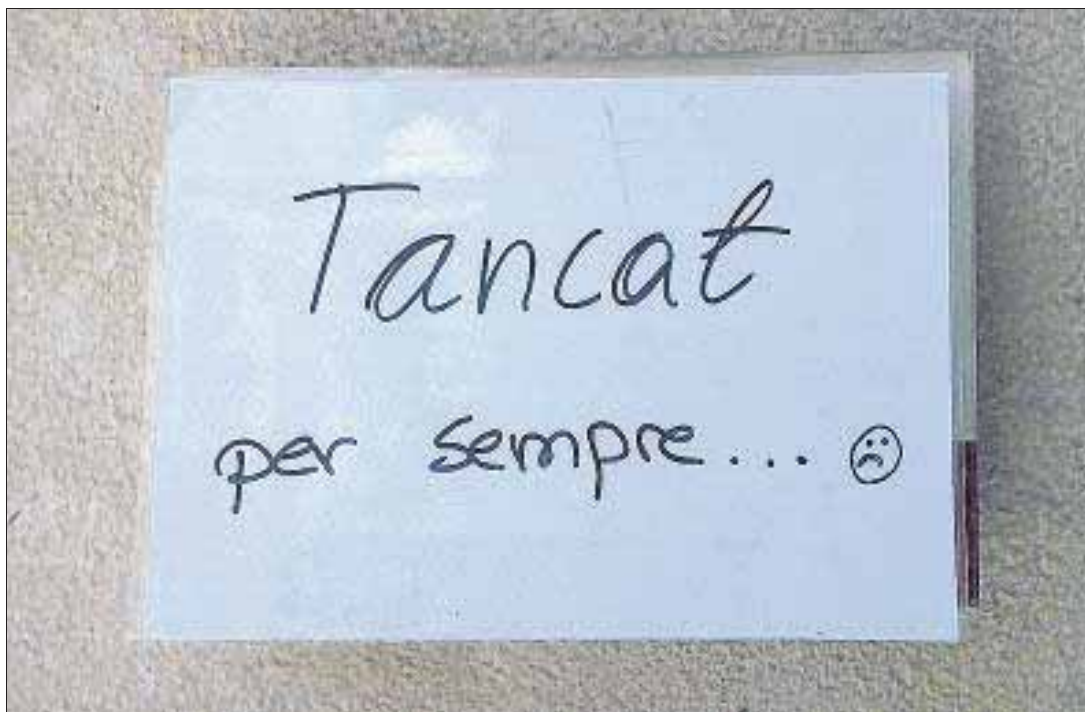 Tancat
per sempre... ☹